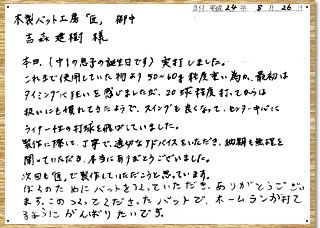 日付 平成24年 8月 26日
木製バット工房「匠」 御中
吉森建樹 様
本日、(中1の息子の誕生日です) 実打しました。
これまで使用していた物より50〜60g程度重い為か、最初は
タイミングに狂いを感じましたが、20球程度打ってからは
扱いにも慣れてきたようで、スイングも良くなって、センター中心に
ライナー性の打球を飛ばしていました。
製作に際して、丁寧で、適切なアドバイスをいただき、納期も無理を
聞いていただき、本当にありがとうございました。
次回も「匠」で製作していただこうと思っています。
ぼくのためにバットをつくっていただき、ありがとうござい
ます。このつくってくださったバットで、ホームランが打て
るようにがんばりたいです。